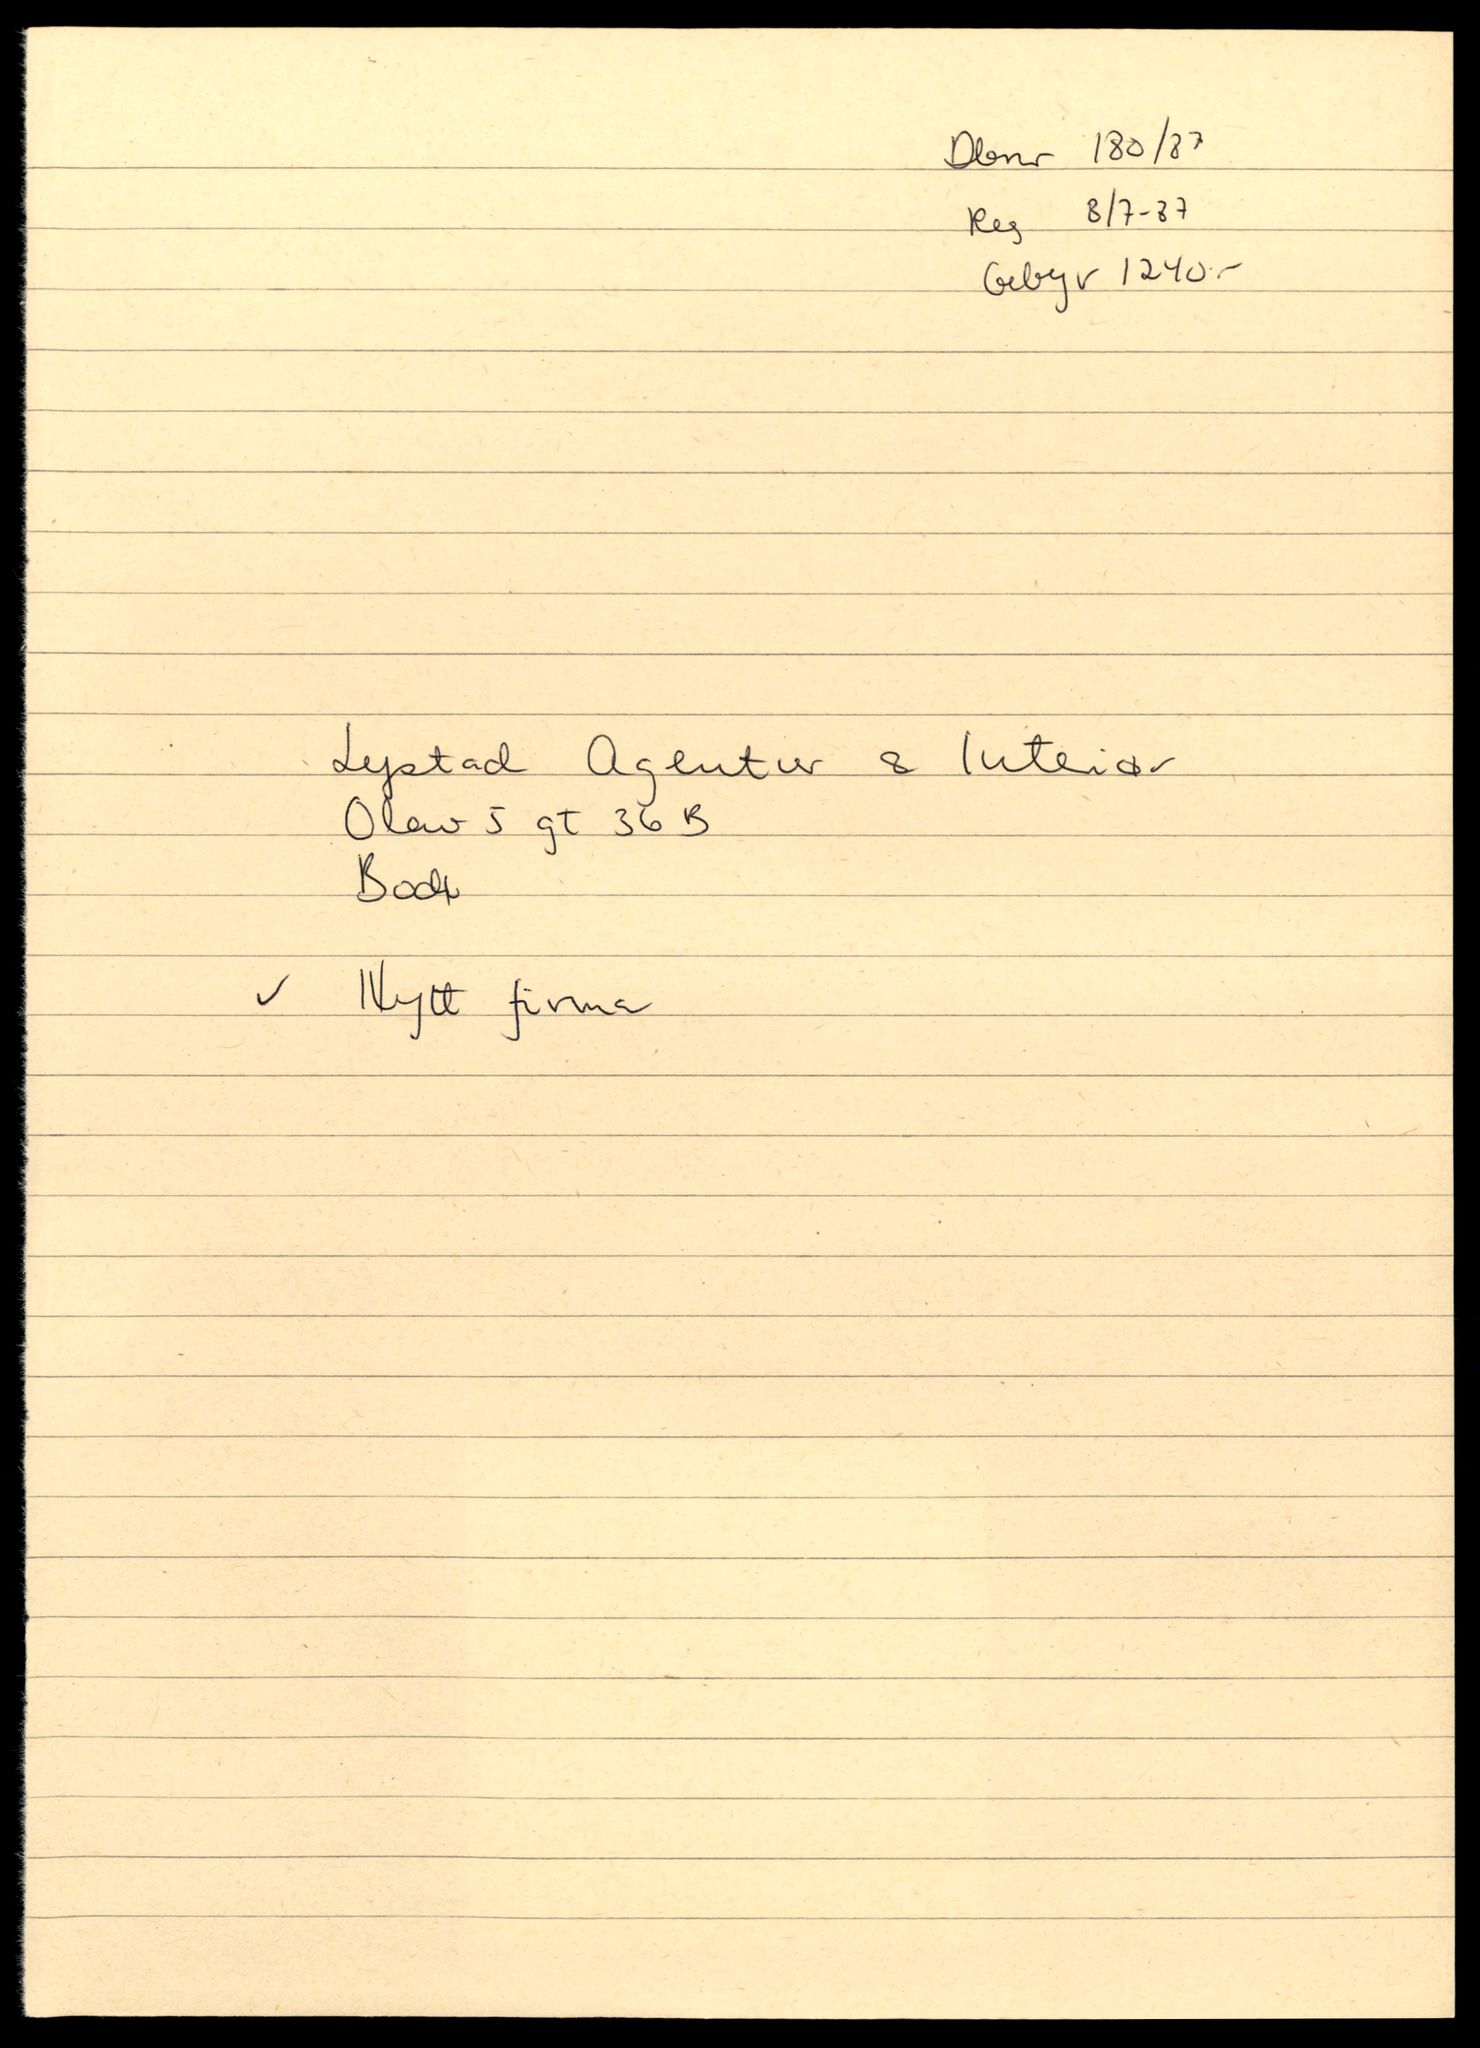 Dbnr 180/87
Reg 8/7-87
Gebyr 1240.-
Lystad Agentur & Interiør
Olav 5 gt 36 B
Bodø
✓ Nytt firma